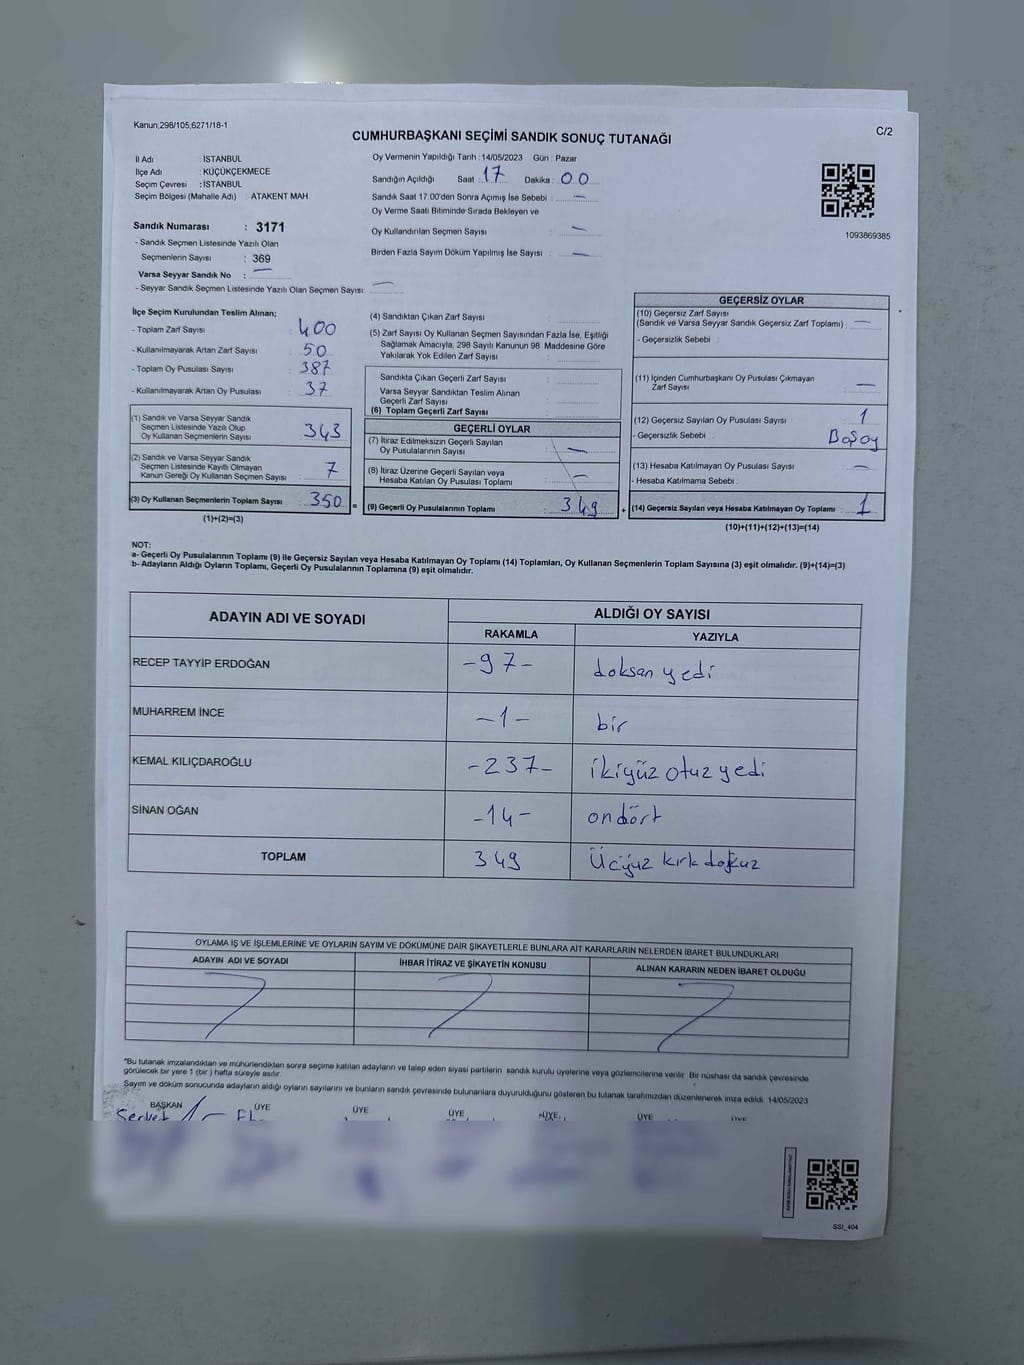 Kanun,298/105,6271/18-1
C/2
CUMHURBAŞKANI SEÇİMİ SANDIK SONUÇ TUTANAĞI
İl Adı : İSTANBUL
İlçe Adı : KÜÇÜKÇEKMECE
Seçim Çevresi : İSTANBUL
Seçim Bölgesi (Mahalle Adı) : ATAKENT MAH.
Sandık Numarası : 3171
- Sandık Seçmen Listesinde Yazılı Olan
Seçmenlerin Sayısı : 369
Varsa Seyyar Sandık No : —
- Seyyar Sandık Seçmen Listesinde Yazılı Olan Seçmen Sayısı: —
Oy Vermenin Yapıldığı Tarih : 14/05/2023 Gün : Pazar
Sandığın Açıldığı Saat : 17 Dakika : 00
Sandık Saat 17:00'den Sonra Açımış İse Sebebi : —
Oy Verme Saati Bitiminde Sırada Bekleyen ve
Oy Kullandırılan Seçmen Sayısı : —
Birden Fazla Sayım Döküm Yapılmış İse Sayısı : —
1093869385
İlçe Seçim Kurulundan Teslim Alınan;
- Toplam Zarf Sayısı : 400
- Kullanılmayarak Artan Zarf Sayısı : 50
- Toplam Oy Pusulası Sayısı : 387
- Kullanılmayarak Artan Oy Pusulası : 37
(1) Sandık ve Varsa Seyyar Sandık
Seçmen Listesinde Yazılı Olup
Oy Kullanan Seçmenlerin Sayısı : 343
(2) Sandık ve Varsa Seyyar Sandık
Seçmen Listesinde Kayıtlı Olmayan
Kanun Gereği Oy Kullanan Seçmen Sayısı : 7
(3) Oy Kullanan Seçmenlerin Toplam Sayısı : 350
(1)+(2)=(3)
(4) Sandıktan Çıkan Zarf Sayısı :
(5) Zarf Sayısı Oy Kullanan Seçmen Sayısından Fazla İse, Eşitliği
Sağlamak Amacıyla, 298 Sayılı Kanunun 98. Maddesine Göre
Yakılarak Yok Edilen Zarf Sayısı :
Sandıkta Çıkan Geçerli Zarf Sayısı :
Varsa Seyyar Sandıktan Teslim Alınan
Geçerli Zarf Sayısı :
(6) Toplam Geçerli Zarf Sayısı :
GEÇERLİ OYLAR
(7) İtiraz Edilmeksizin Geçerli Sayılan
Oy Pusulalarının Sayısı : —
(8) İtiraz Üzerine Geçerli Sayılan veya
Hesaba Katılan Oy Pusulası Toplamı : —
= (9) Geçerli Oy Pusulalarının Toplamı : 349
GEÇERSİZ OYLAR
(10) Geçersiz Zarf Sayısı
(Sandık ve Varsa Seyyar Sandık Geçersiz Zarf Toplamı) : —
- Geçersizlik Sebebi :
(11) İçinden Cumhurbaşkanı Oy Pusulası Çıkmayan
Zarf Sayısı : —
(12) Geçersiz Sayılan Oy Pusulası Sayısı : 1
- Geçersizlik Sebebi : Boşoy
(13) Hesaba Katılmayan Oy Pusulası Sayısı : —
- Hesaba Katılmama Sebebi :
+ (14) Geçersiz Sayılan veya Hesaba Katılmayan Oy Toplamı : 1
(10)+(11)+(12)+(13)=(14)
NOT:
a- Geçerli Oy Pusulalarının Toplamı (9) ile Geçersiz Sayılan veya Hesaba Katılmayan Oy Toplamı (14) Toplamları, Oy Kullanan Seçmenlerin Toplam Sayısına (3) eşit olmalıdır. (9)+(14)=(3)
b- Adayların Aldığı Oyların Toplamı, Geçerli Oy Pusulalarının Toplamına (9) eşit olmalıdır.
ADAYIN ADI VE SOYADI
ALDIĞI OY SAYISI
RAKAMLA YAZIYLA
RECEP TAYYİP ERDOĞAN -97- doksan yedi
MUHARREM İNCE -1- bir
KEMAL KILIÇDAROĞLU -237- ikiyüz otuz yedi
SİNAN OĞAN -14- ondört
TOPLAM 349 Üçyüz kırk dokuz
OYLAMA İŞ VE İŞLEMLERİNE VE OYLARIN SAYIM VE DÖKÜMÜNE DAİR ŞİKAYETLERLE BUNLARA AİT KARARLARIN NELERDEN İBARET BULUNDUKLARI
ADAYIN ADI VE SOYADI İHBAR İTİRAZ VE ŞİKAYETİN KONUSU ALINAN KARARIN NEDEN İBARET OLDUĞU
*Bu tutanak imzalandıktan ve mühürlendikten sonra seçime katılan adayların ve talep eden siyasi partilerin sandık kurulu üyelerine veya gözlemcilerine verilir. Bir nüshası da sandık çevresinde
görülecek bir yere 1 (bir) hafta süreyle asılır.
Sayım ve döküm sonucunda adayların aldığı oyların sayılarını ve bunların sandık çevresinde bulunanlara duyurulduğunu gösteren bu tutanak tarafımızdan düzenlenerek imza edildi. 14/05/2023
BAŞKAN ÜYE ÜYE ÜYE ÜYE ÜYE ÜYE
Servet
SSI_404